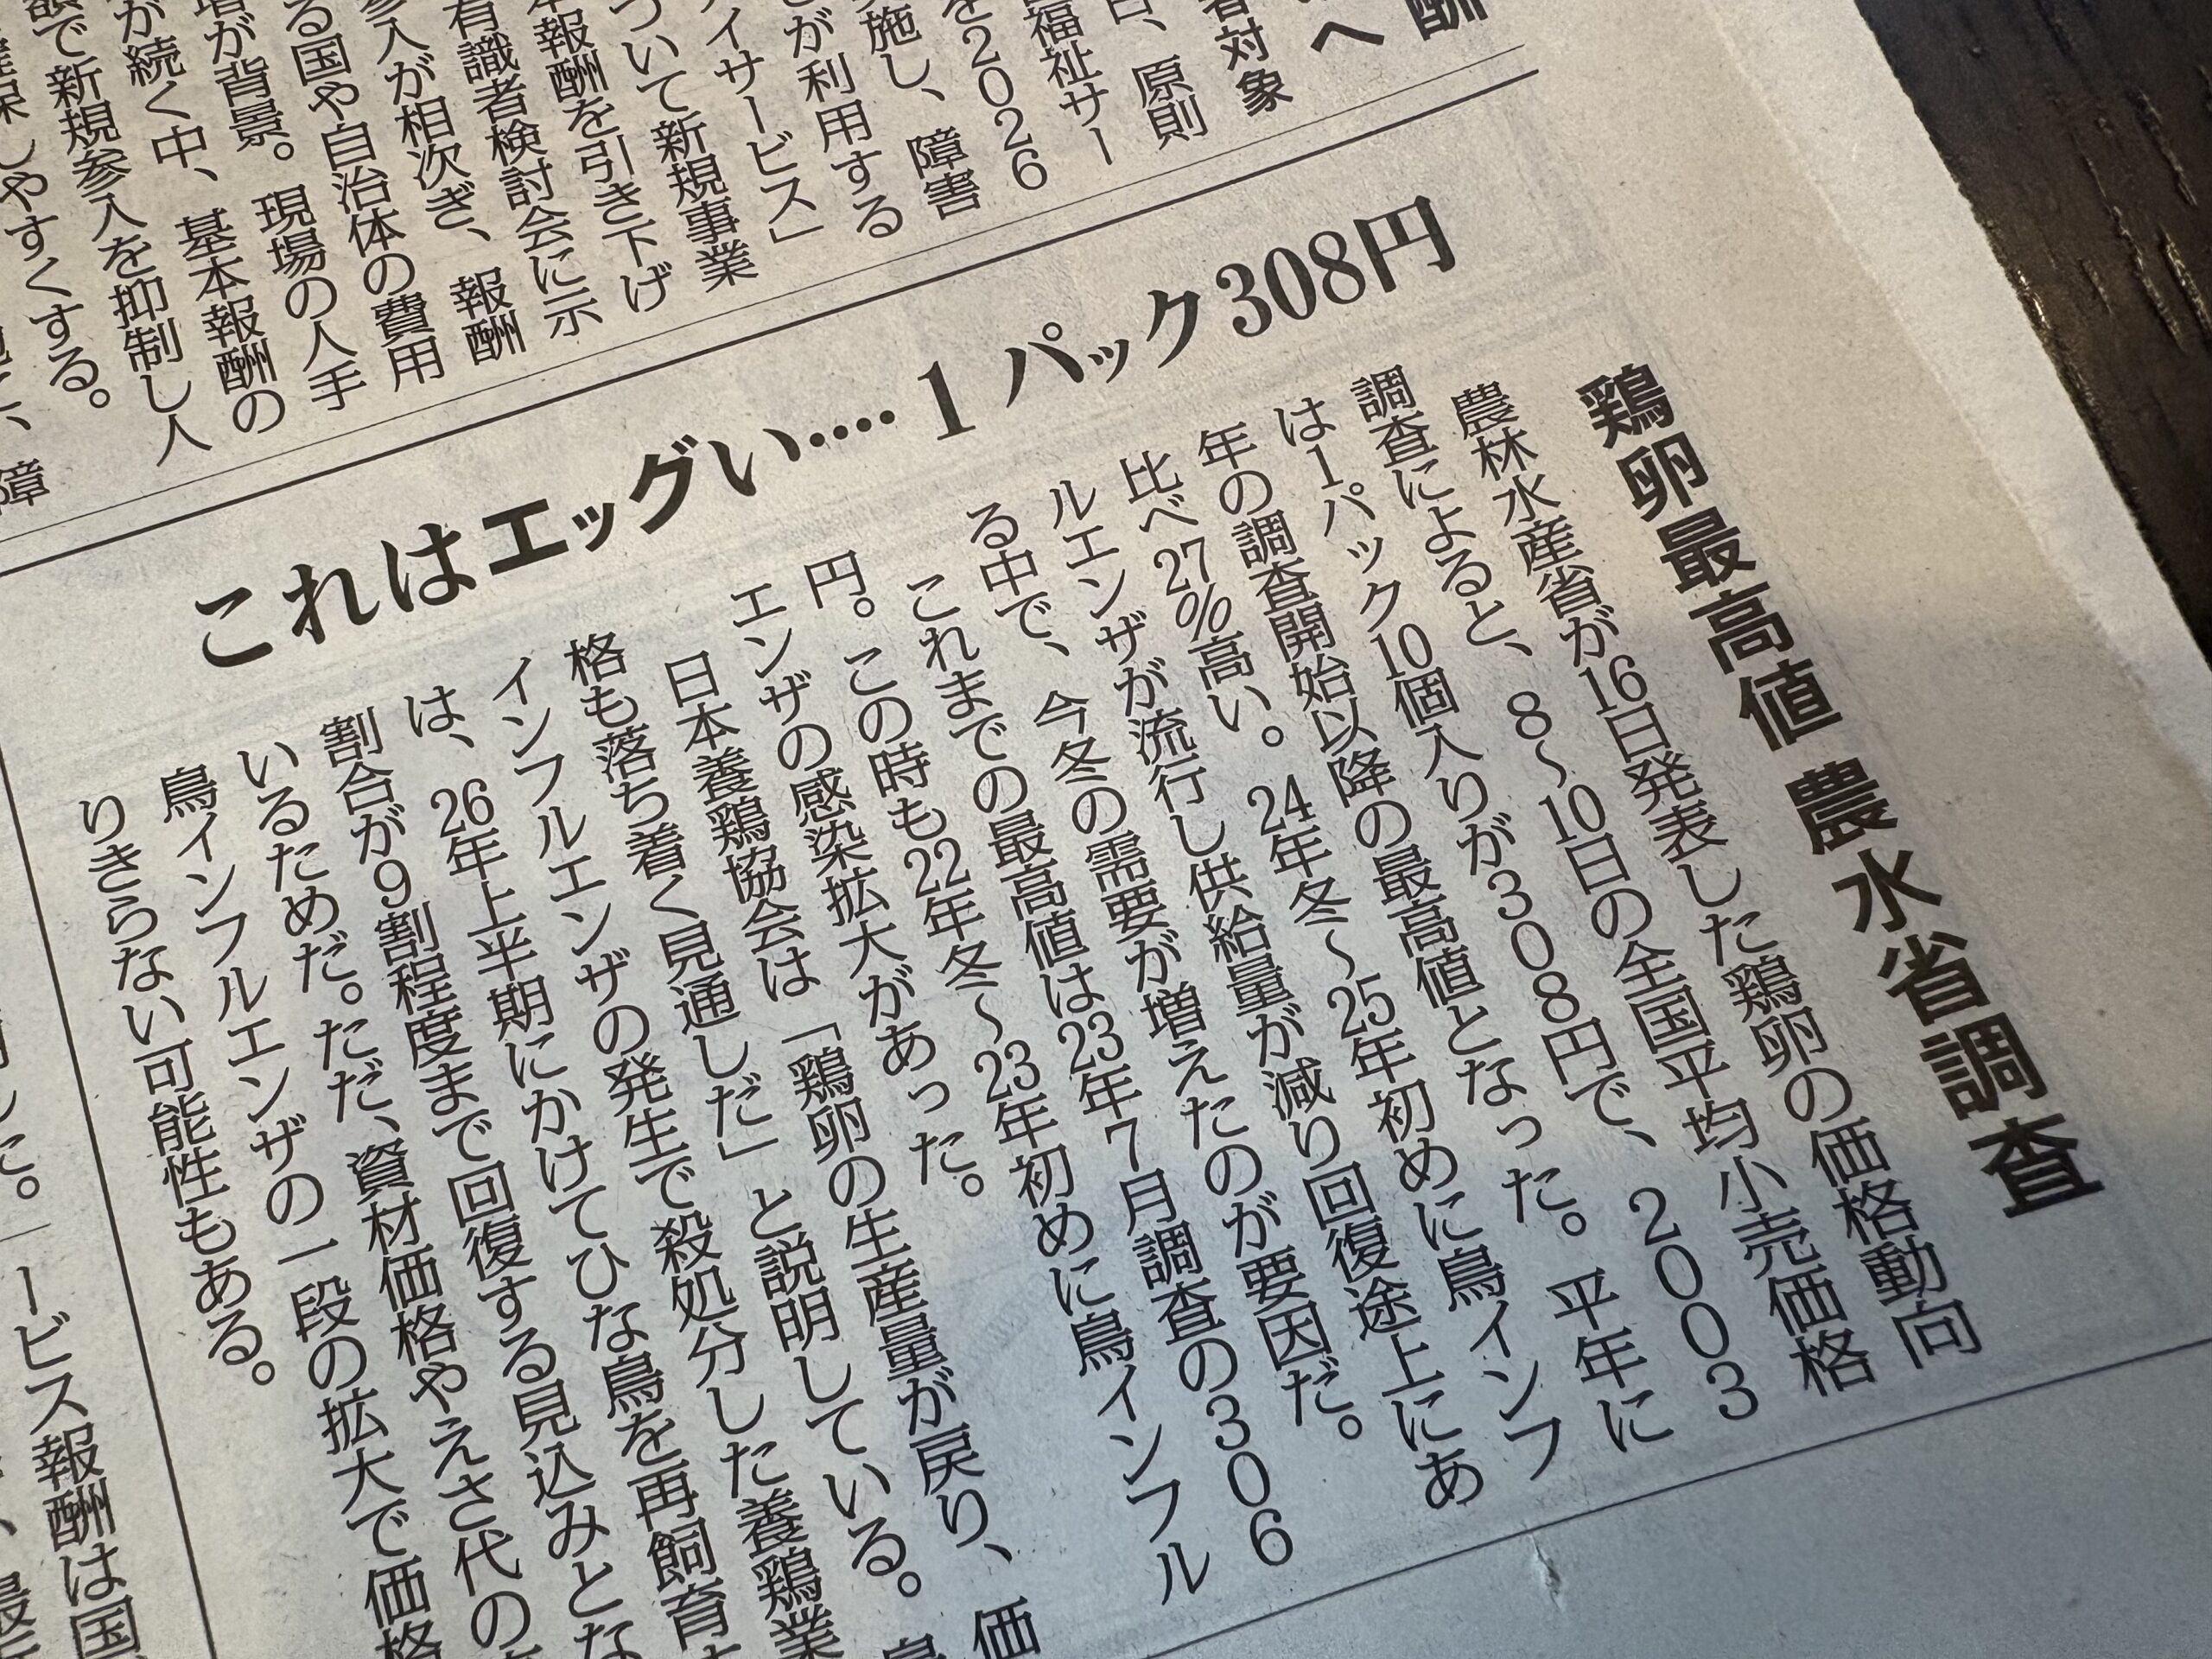 酬
へ
者対象
日、原則
福祉サー
を2026
施し、障害
が利用する
イサービス」
ついて新規事業
報酬を引き下げ
有識者検討会に示
参入が相次ぎ、報酬
る国や自治体の費用
増が背景。現場の人手
が続く中、基本報酬の
額で新規参入を抑制し人
確保しやすくする。
障
これはエッグい‥‥1パック308円
鶏卵最高値 農水省調査
農林水産省が16日発表した鶏卵の価格動向
調査によると、8〜10日の全国平均小売価格
は1パック10個入りが308円で、2003
年の調査開始以降の最高値となった。平年に
比べ27%高い。24年冬〜25年初めに鳥インフ
ルエンザが流行し供給量が減り回復途上にあ
る中で、今冬の需要が増えたのが要因だ。
これまでの最高値は23年7月調査の306
円。この時も22年冬〜23年初めに鳥インフル
エンザの感染拡大があった。
日本養鶏協会は「鶏卵の生産量が戻り、価
格も落ち着く見通しだ」と説明している。鳥
インフルエンザの発生で殺処分した養鶏業
は、26年上半期にかけてひな鳥を再飼育
割合が9割程度まで回復する見込みとな
いるためだ。ただ、資材価格やえさ代の
鳥インフルエンザの一段の拡大で価格
りきらない可能性もある。
ービス報酬は国